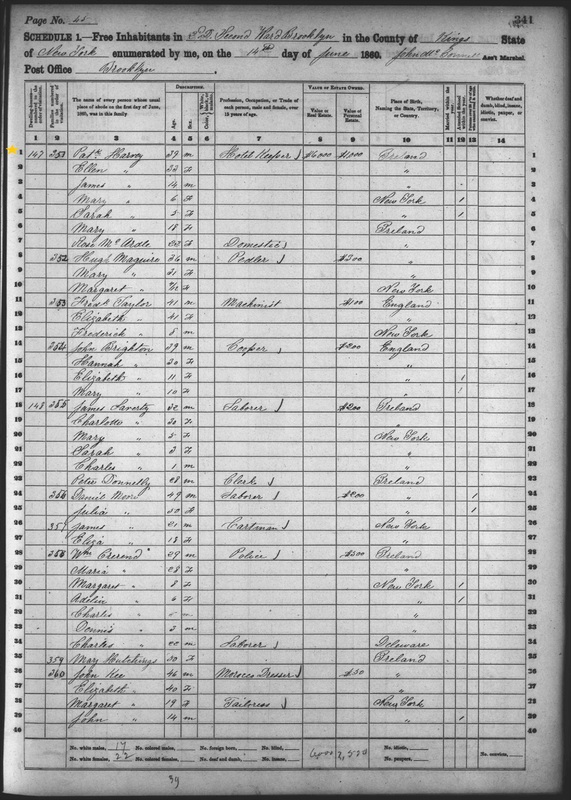 Page No. 45
341
SCHEDULE 1.—Free Inhabitants in P.D. Second Ward Brooklyn in the County of Kings State
of New York enumerated by me, on the 14th day of June 1860. Ass't Marshal.
Post Office Brooklyn
DESCRIPTION. VALUE OF ESTATE OWNED.
The name of every person whose usual place of abode on the first day of June, 1860, was in this family.
Age. Sex.
Profession, Occupation, or Trade of each person, male and female, over 15 years of age.
Value of Real Estate. Value of Personal Estate.
Place of Birth, Naming the State, Territory, or Country.
Whether deaf and dumb, blind, insane, idiotic, pauper, or convict.
1 2 3 4 5 6 7 8 9 10 11 12 13 14
1 147 251 Patk Harvey 39 m Hotel Keeper $6000 $1000 Ireland 1
2 Ellen " 32 f " 2
3 James " 14 m " 3
4 Mary " 6 f New York 1 4
5 Sarah " 5 f " 1 5
6 Mary " 18 f Ireland 6
7 Rose Mc Ardle f Domestic " 7
8 252 Hugh Maguire 36 m Pedler $200 " 8
9 Mary " 31 f " 9
10 Margaret " f New York 10
11 253 Fredk Taylor 41 m Machinist $100 England 11
12 Elizabeth " 41 f " 12
13 Frederick " 5 m New York 13
14 254 John Brighton 39 m Cooper $200 England 14
15 Hannah " 30 f " 15
16 Elizabeth " 11 f " 1 16
17 Mary " 10 f " 1 17
18 148 255 James Laverty 32 m Laborer $200 Ireland 18
19 Charlotte " 30 f " 19
20 Mary " 5 f New York 20
21 Sarah " 3 f " 21
22 Charles " 1 m " 22
23 Peter Donnelly 28 m Clerk Ireland 23
24 256 Daniel 49 m Laborer " 1 24
25 Julia " 50 f " 1 25
26 257 James " 21 m Cartman New York 26
27 Eliza " 18 f " 27
28 258 Wm 39 m Police $300 Ireland 28
29 Maria " 28 f " 29
30 Margaret " 8 f New York 1 30
31 " 4 f " 1 31
32 Charles " m " 32
33 Dennis " 2 m " 33
34 Charles " 22 m Laborer Deleware 34
35 259 Mary Hutchings 30 f Ireland 35
36 260 John Kee 46 m Morocco Dresser $50 " 36
37 Elizabeth " 40 f " 37
38 Margaret " 19 f Tailoress New York 38
39 John " 14 m " 1 39
40 40
No. white males, 17 No. colored males, No. foreign born, No. blind, 6000 2,550 No. idiotic, No. convicts,
No. white females, 22 No. colored females, No. deaf and dumb, No. insane, No. paupers,
39